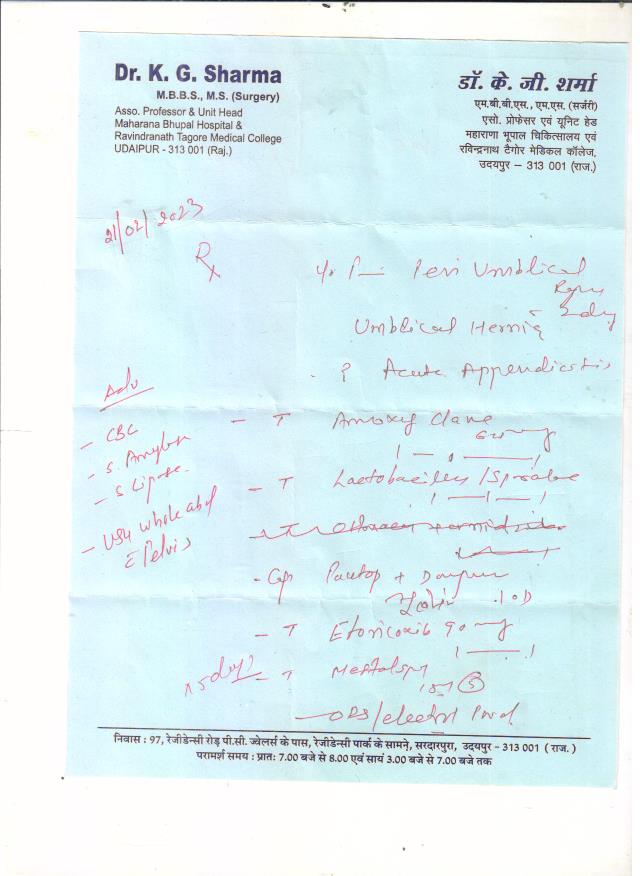 Dr. K. G. Sharma
M.B.B.S., M.S. (Surgery)
Asso. Professor & Unit Head
Maharana Bhupal Hospital &
Ravindranath Tagore Medical College
UDAIPUR - 313 001 (Raj.)
डॉ. के. जी. शर्मा
एम.बी.बी.एस., एम.एस. (सर्जरी)
एसो. प्रोफेसर एवं यूनिट हेड
महाराणा भूपाल चिकित्सालय एवं
रविन्द्रनाथ टैगोर मेडिकल कॉलेज,
उदयपुर – 313 001 (राज.)
21/02/2023
Rx
Peri Umblical
Umblical Hernia
? Acute Appendicitis
Adv
- CBC
- S. Amylase
- S Lipase
- USG whole abd
Pelvis
- T Amoxy Clave
1 - 0 - 1
- T Lactobacillus / Sporolac
1 - 1 - 1
- Cap Pantop +
1 OD
- T Etoricoxib 90 mg
1 - 1
x 5 days
- T
- ORS/electral Powd
निवास : 97, रेजीडेन्सी रोड़ पी.सी. ज्वेलर्स के पास, रेजीडेन्सी पार्क के सामने, सरदारपुरा, उदयपुर - 313 001 ( राज. )
परामर्श समय : प्रातः 7.00 बजे से 8.00 एवं सायं 3.00 बजे से 7.00 बजे तक